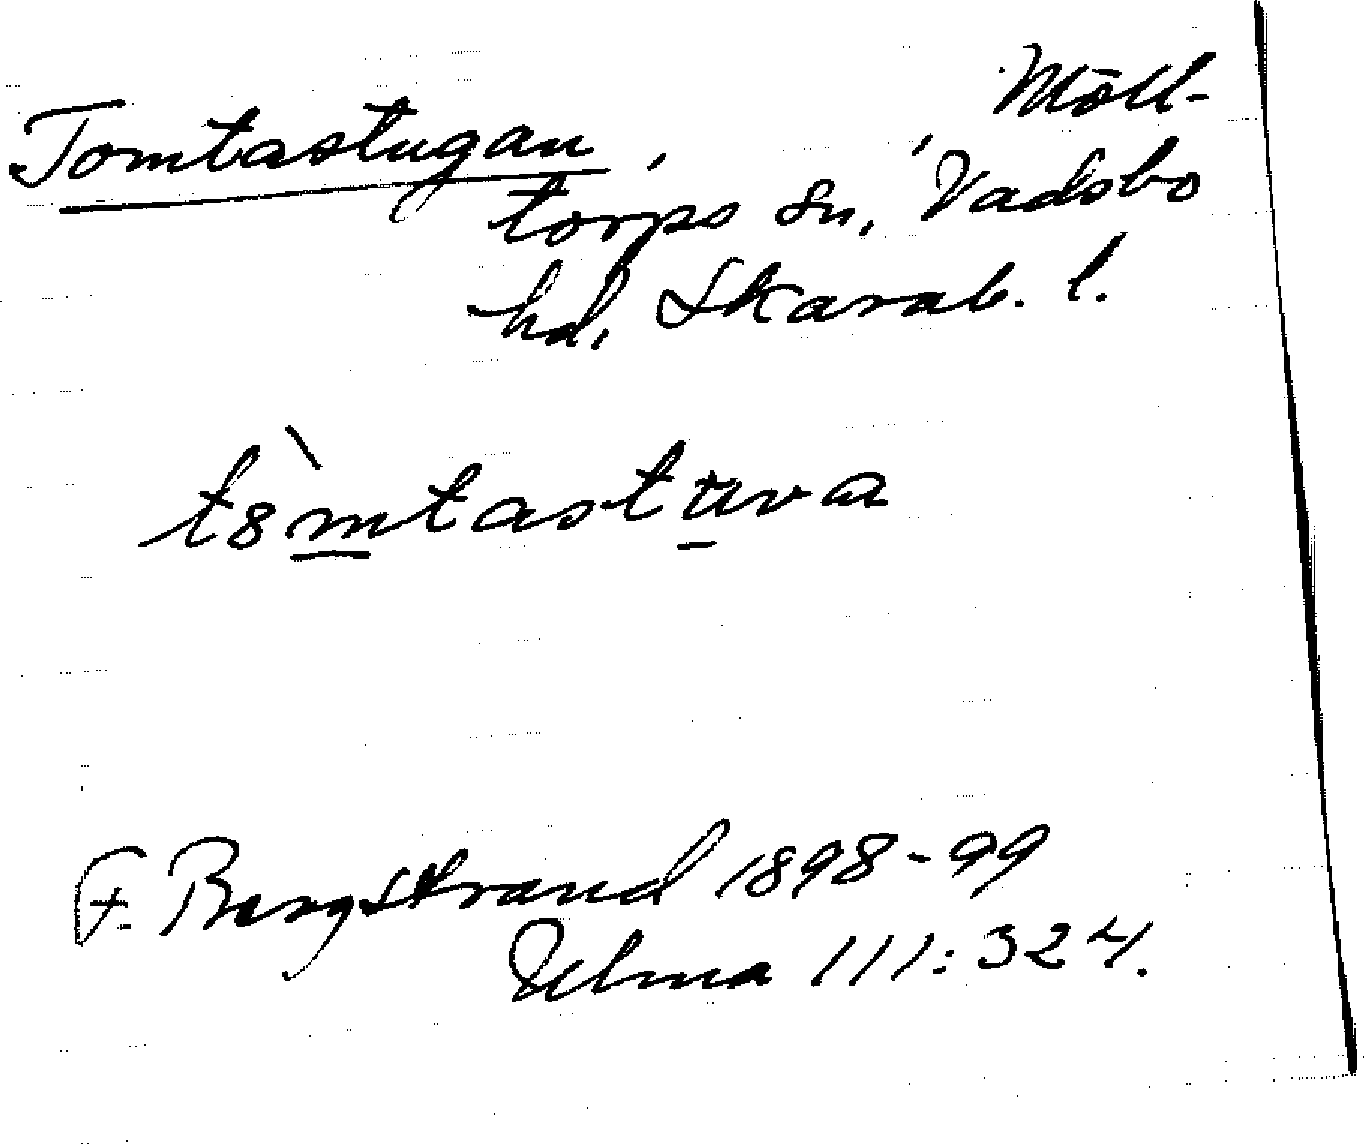 Tomtastugan, , Möll-
torps sn, Vadsbo
hd, Skarab. l.
tömtastuva
F. Bergstrand 1898-99
Ulma 111:324.